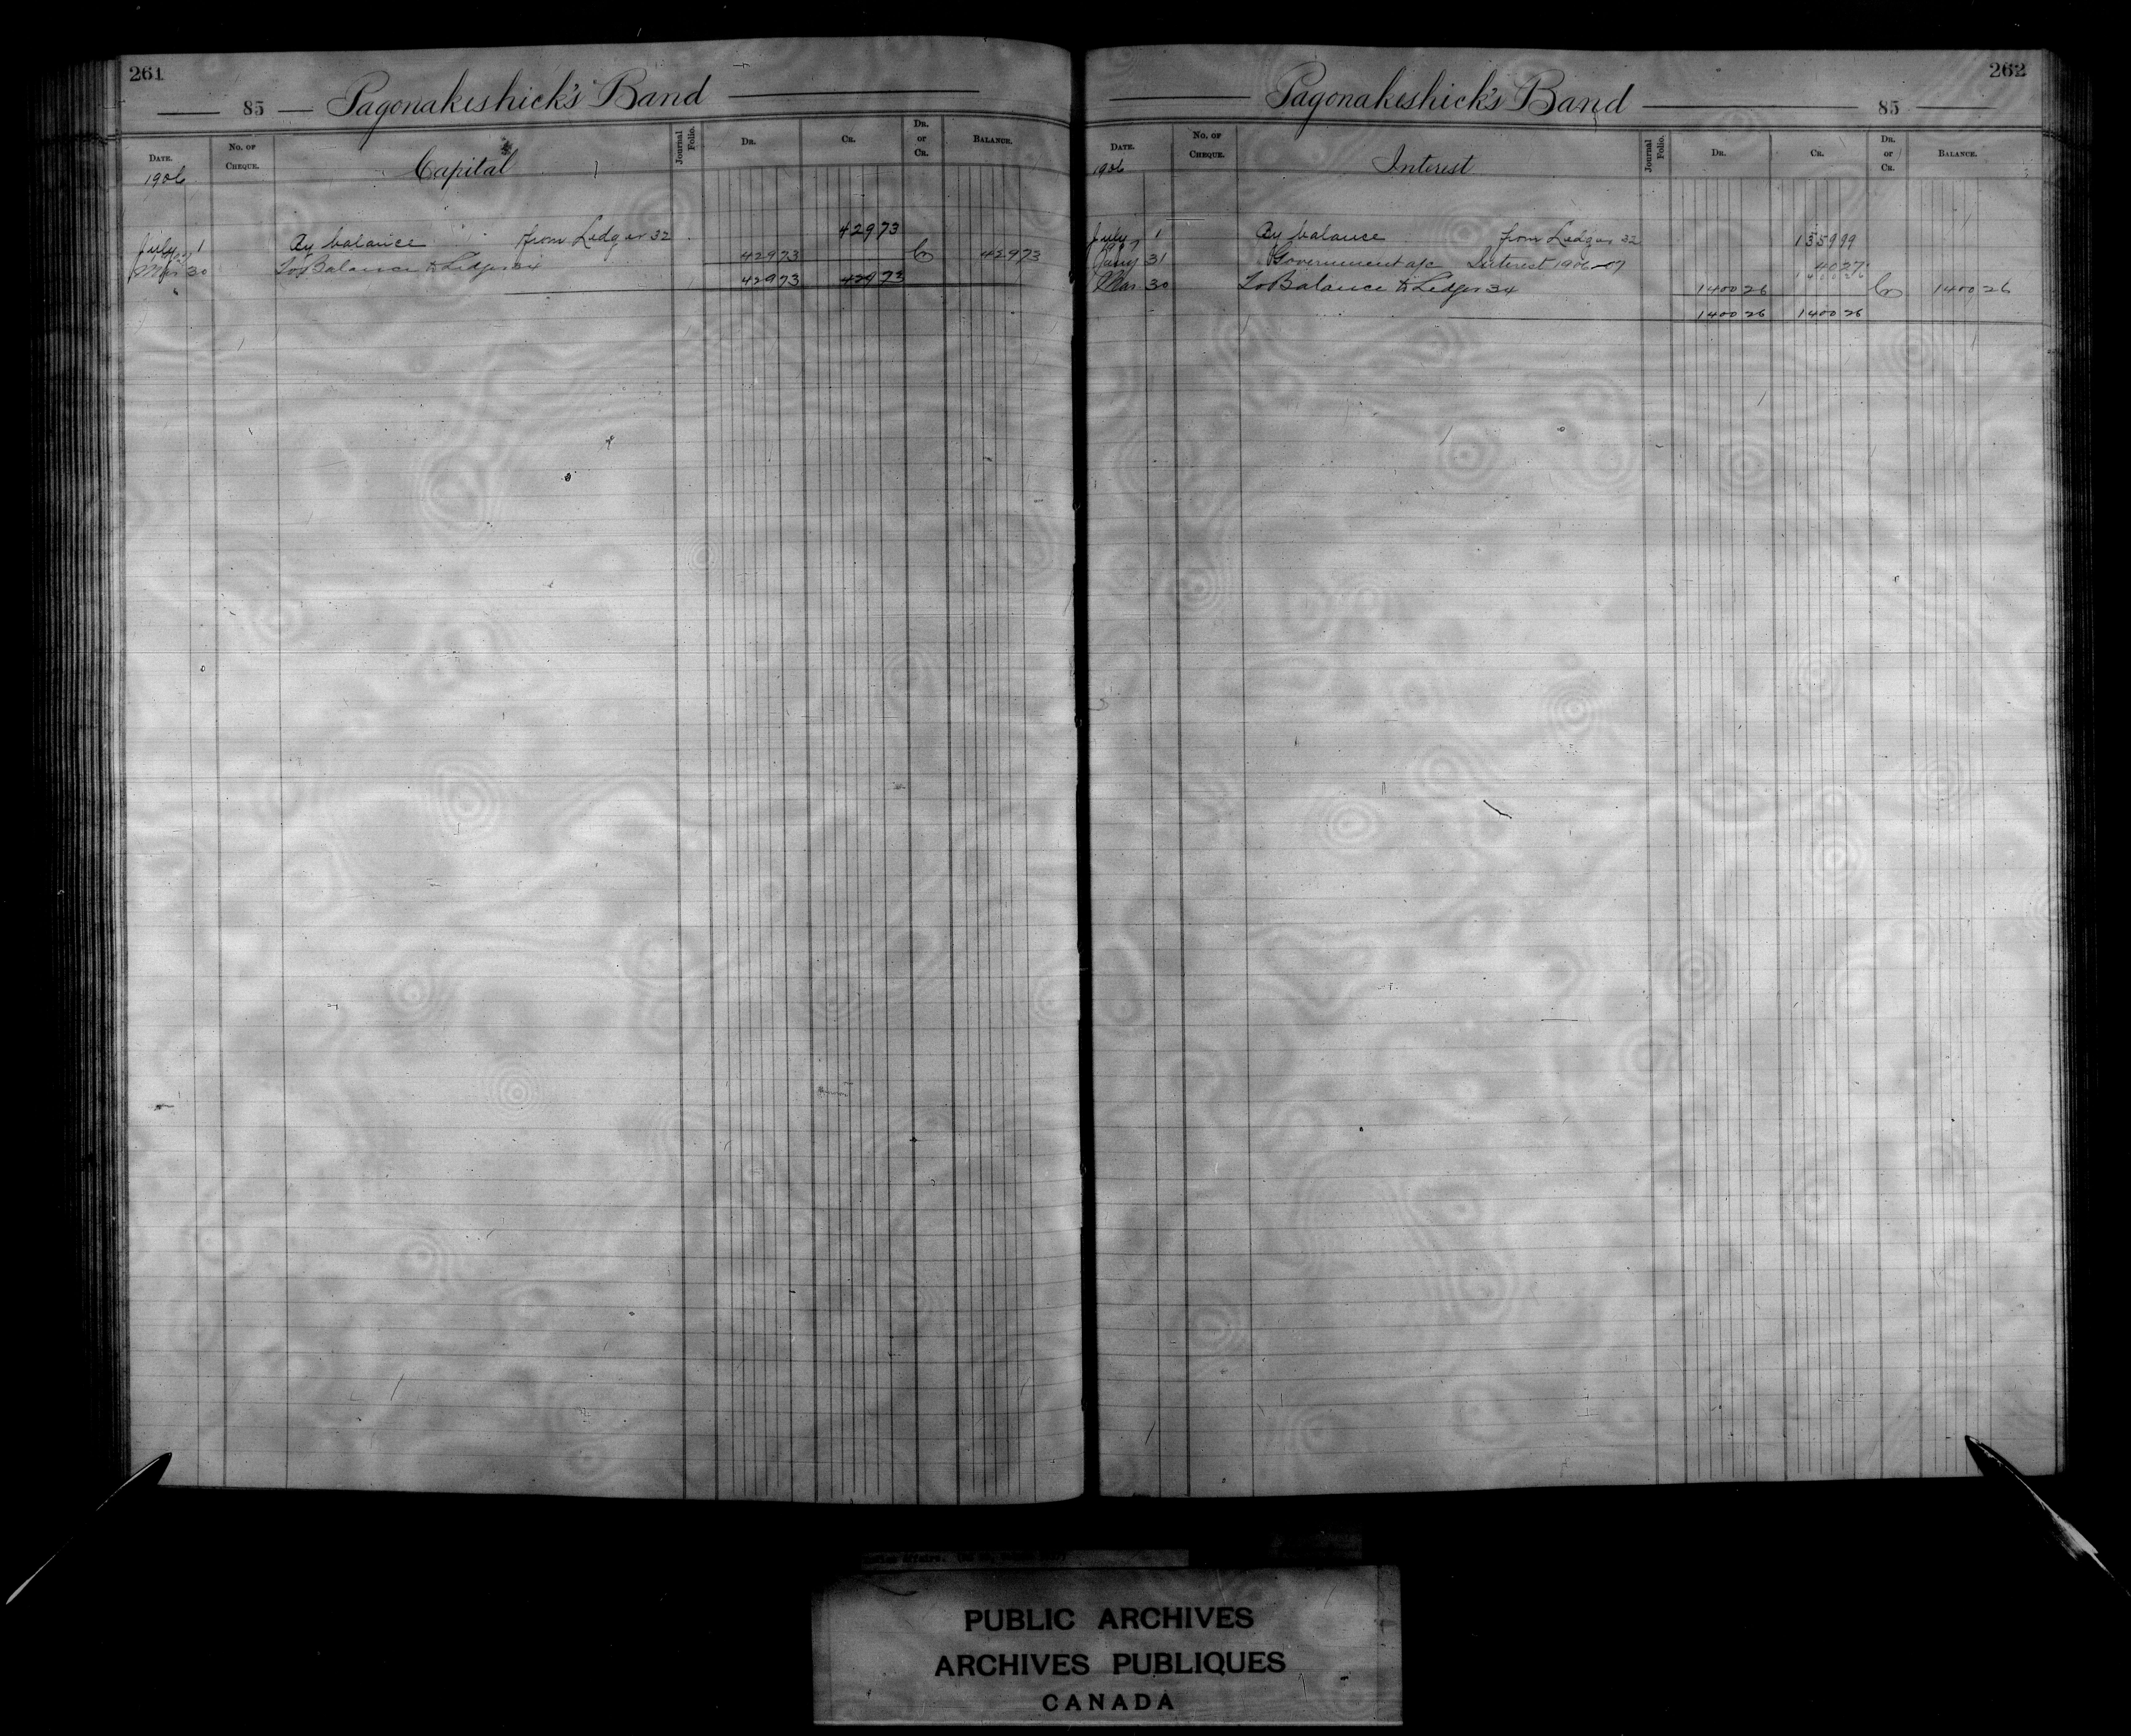 261
85 — Pagonakeshick's Band
DATE. No. of CHEQUE. Capital Journal Folio. DR. CR. DR. or CR. BALANCE.
1906
July 1 By balance from Ledger 32 429 73
Mar 30 To Balance to Ledger 34 429 73 Cr 429 73
429 73 429 73
262
Pagonakeshick's Band — 85
DATE. No. of CHEQUE. Interest Journal Folio. DR. CR. DR. or CR. BALANCE.
1906
July 1 By balance from Ledger 32 1359 99
Jany 31 Government a/c Interest 1906-07 40 27
1400 26
Mar 30 To Balance to Ledger 34 1400 26 Cr 1400 26
1400 26 1400 26
PUBLIC ARCHIVES
ARCHIVES PUBLIQUES
CANADA